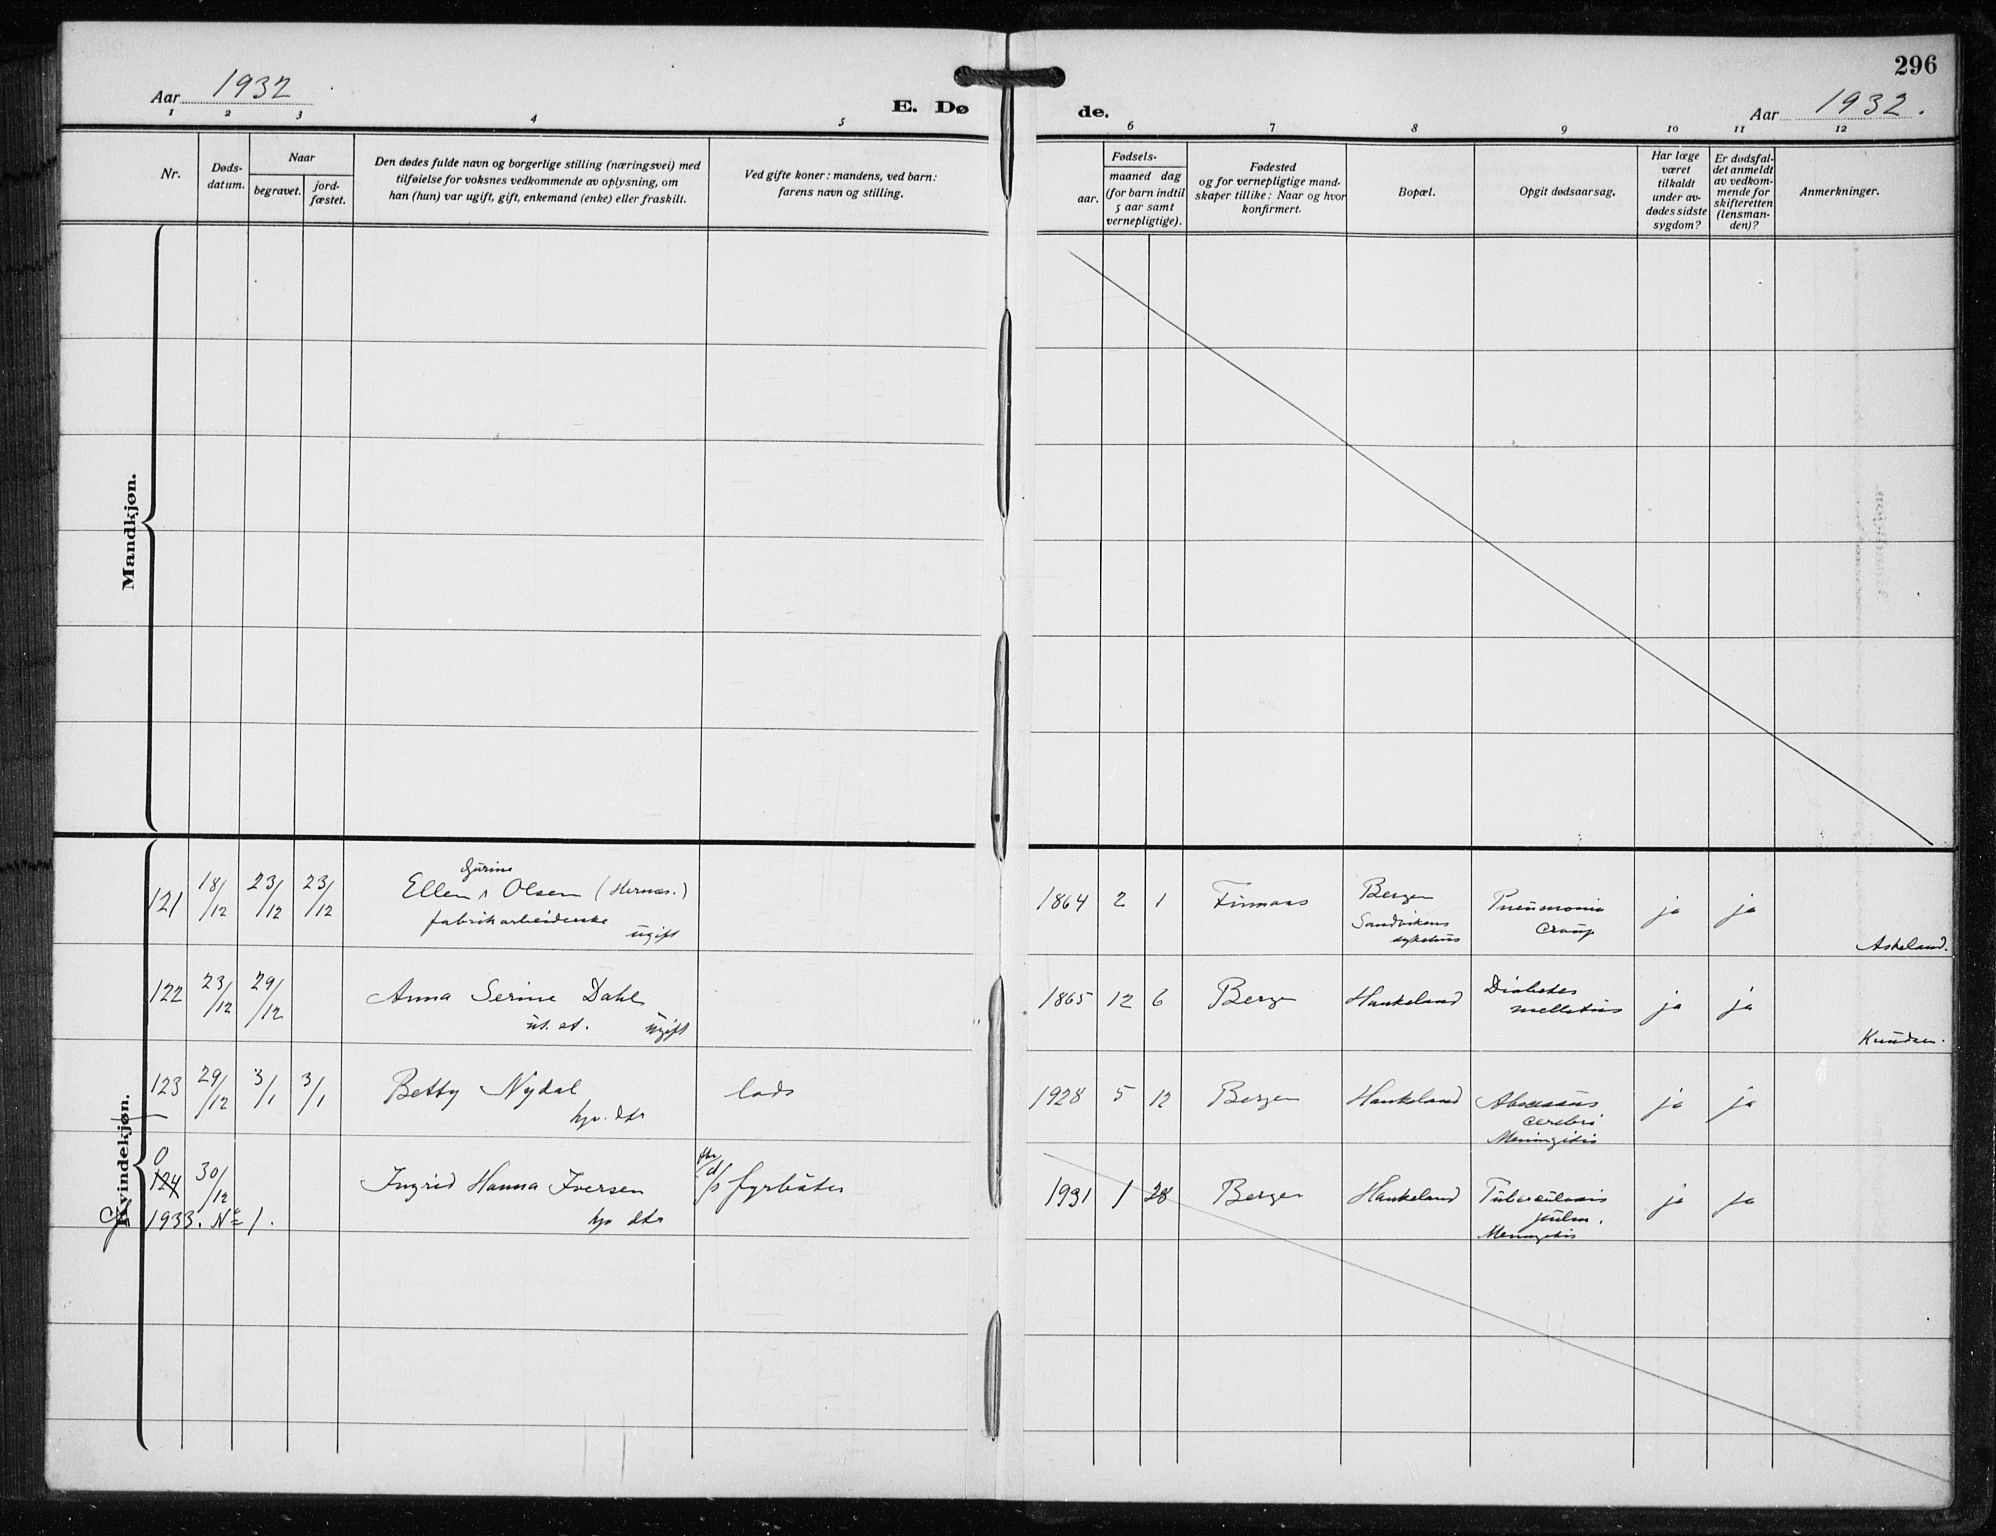 296
Aar 1932
E. Dø
de.
Aar 1932.
1 2 3 4 5 6 7 8 9 10 11 12
Nr.
Døds-
datum.
Naar
begravet.
jord-
fæstet.
Den dødes fulde navn og borgerlige stilling (næringsvei) med
tilføielse for voksnes vedkommende av oplysning, om
han (hun) var ugift, gift, enkemand (enke) eller fraskilt.
Ved gifte koner: mandens, ved barn:
farens navn og stilling.
aar.
Fødsels-
maaned dag
(for barn indtil
5 aar samt
vernepligtige).
Fødested
og for vernepligtige mand-
skaper tillike: Naar og hvor
konfirmert.
Bopæl.
Opgit dødsaarsag.
Har læge
været
tilkaldt
under av-
dødes sidste
sygdom?
Er dødsfal-
det anmeldt
av vedkom-
mende for
skifteretten
(lensman-
den)?
Anmerkninger.
Mandkjøn.
Kvindekjøn.
121 18/12 23/12 23/12 Ellen Olsen (Hernæs.)
fabrikarbeiderske
ugift
1864 2 1
Bergen
Sandvikens
sykehus
Pneumonia
Croup
ja ja
Askeland.
122 23/12 29/12 Anna Serine Dahl
ugift
1865 12 6 Bergen Haukeland Diabetes
mellitus
ja ja
Knudsen.
123 29/12 3/1 3/1 Betty Nydal
hjv. dtr
lods
1928 5 12 Bergen Haukeland Abscessus
cerebri
Meningitis
ja ja
0
124 30/12 Ingrid Hanna Iversen
hjv dtr
d/s fyrbøter
1931 1 28 Bergen Haukeland Tuberculosis
pulm.
Meningitis
ja ja
1933. No 1.